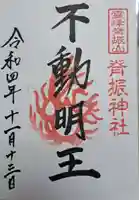 脊振神社
不動明王
令和四年十一月十三日